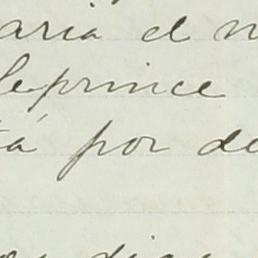 aria el n
Leprince
tá por de